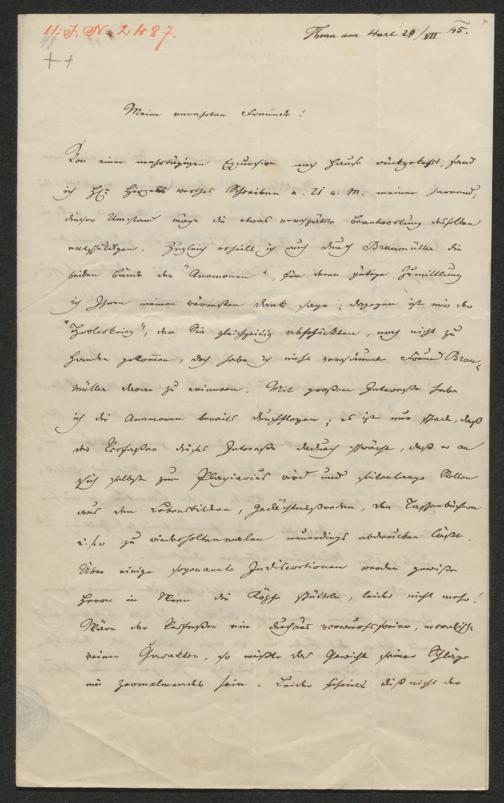 H. I. N. 21087.
Thurn am Hart 29/VII 45.
Mein verehrter Freund!
Von einer mehrtägigen Excursion nach Hause rückgekehrt, fand
ich Hirzels werthes Schreiben u. A. m. meiner harrend;
dieser Umstand möge die etwas verspätete Beantwortung desselben
entschuldigen. Zugleich erhielt ich auch durch Braumüller die
beiden Bände der "Anemonen", für deren gütige Zumittlung
ich Ihnen meinen wärmsten Dank sage; dagegen ist mir der
", den Sie gleichzeitig abschickten, noch nicht zu
Handen gekommen, doch habe ich nicht versäumt Freund Brau-
müller daran zu erinnern. Mit großem Interesse habe
ich die Anemonen bereits durchflogen; es ist nur Schade, daß
der Verfasser dieses Interesse dadurch schwächt, daß er an
sich selbst zum Plagiarius wird und seitenlange Stellen
aus den Lebensbildern, Gedächtnißreden, den Taschenbüchern
zu wiederholtenmalen neuerdings abdrucken läßt.
Über einige sogenannte Indiscretionen werden gewisse
Herren in Wien die Köpfe schütteln, leider nicht mehr!
Wäre der Verfasser ein durchaus vorwurfsfreier, moralisch
reiner Charakter, so müßte das Gewicht seiner Schläge
ein zermalmendes sein. Leider scheint dieß nicht der